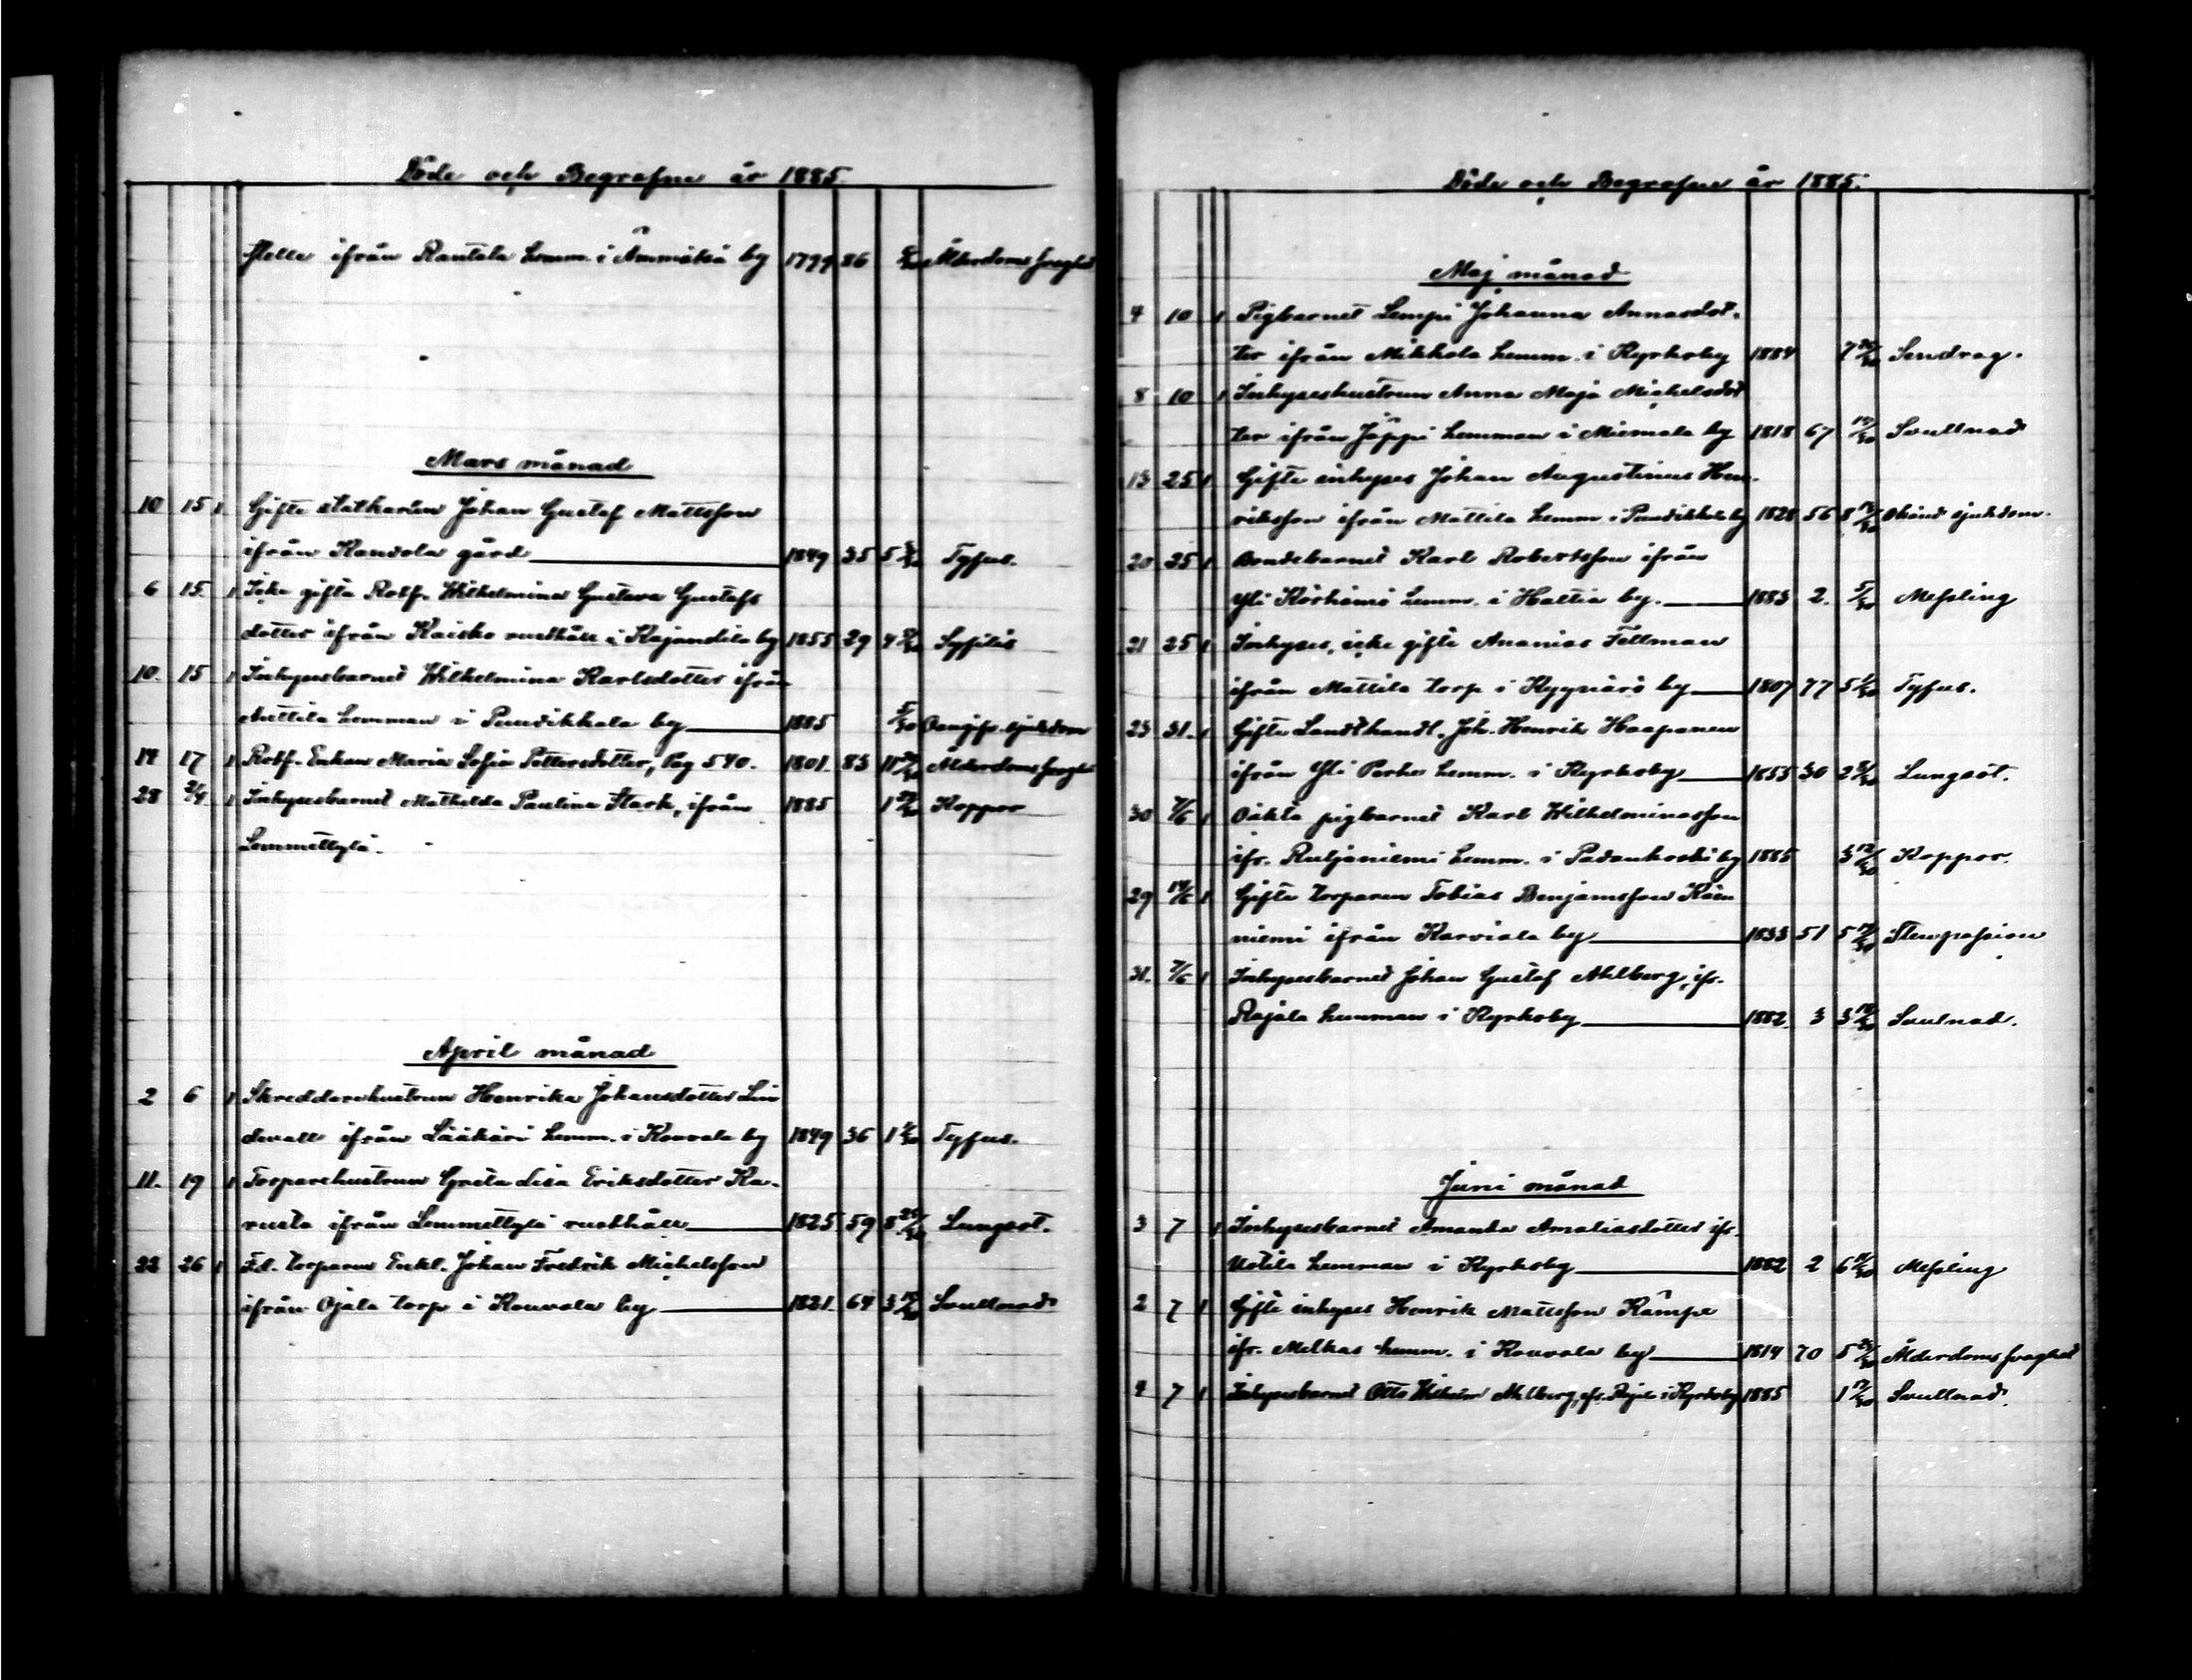 Döde och Begrafne år 1885.
ifrån Rautela hemm. i Ämmätsä by 1799 86 Ålderdomssvaghet
Mars månad
10 15 1 Gifte statkarlen Johan Gustaf Mattsson
ifrån Kandola gård 1849 35 5 Tyfus.
6 15 1 Icke gifta Rotf. Wilhelmina Gustava Gustafs
dotter ifrån Kaisko rusthåll i Kajandila by 1855 29 4 Syfilis
10. 15 1 Inhysesbarnet Wilhelmina Karlsdotter ifrån
Mattila hemman i Puudikkala by 1885 5/30 Oangif. sjukdom
14 17 1 Rotf. Enkan Maria Sofia Pettersdotter, Pag 540. 1801. 83 11 Ålderdomssvaghet
28 2/4 1 Inhysesbarnet Mathilda Paulina Stark, ifrån 1885 1 Koppor
Lemmettylä.
April månad
2 6 1 Skreddarehustrun Henrika Johansdotter Lin
dvall ifrån Lääkäri hemm. i Kouvala by 1849 36 1 Tyfus.
11. 19 1 Torparehustrun Greta Lisa Eriksdotter Ka-
rusta ifrån Lemmettylä rusthåll 1825 59 8 Lungsot.
22 26 1 F.d. torparen Enkl. Johan Fredrik Michelsson
ifrån Ojala torp i Kouvala by 1821. 64 3 Svullnad
Döde och Begrafne år 1885.
Maj månad
4 10 1 Pigbarnet Lempi Johanna Annasdot-
ter ifrån Mikkola hemm. i Kyrkoby 1884 7 Sendrag.
8 10 1 Inhyseshustrun Anna Maja Michelsdot
ter ifrån Jäppi hemman i Miemala by 1818 67 Svullnad
13 25 1 Gifte inhyses Johan Augustinus Hen-
riksson ifrån Mattila hemm. i Puudikkala by 1828 56 8 Okänd sjukdom.
20 25 1 Bondebarnet Karl Robertsson ifrån
Yli Körhämö hemm. i Haltia by. 1883 2. 5/30 Messling
21 25 1 Inhyses, icke gifte Ananias Fellman
ifrån Mattila torp i Kyynärö by 1807 77 5 Tyfus.
23 31. 1 Gifte Landthandl. Joh. Henrik Haapanen
ifrån Yli Perho hemm. i Kyrkoby 1855 30 2 Lungsot.
30 7/6 1 Oäkta pigbarnet Karl Wilhelminasson
ifr. Ruljaniemi hemm. i Padankoski by 1885 3 12/30 Koppor.
29 14/6 1 Gifte torparen Tobias Benjamsson Kär
niemi ifrån Karviala by 1833 51 5 Stenpassion
31. 7/6 1 Inhysesbarnet Johan Gustaf Ahlberg, ifr.
Rajala hemman i Kyrkoby 1882. 3 3 Svulnad.
Juni månad
3 7 1 Inhysesbarnet Amanda Amaliasdotter ifr.
Uotila hemman i Kyrkoby 1882 2 6 Messling
2 7 1 Gifte inhyses Henrik Mattsson Kämpe
ifr. Melkas hemm. i Kouvala by 1814 70 5 Ålderdomssvaghet
4 7 1 Inhysesbarnet Otto Wilhelm Ahlberg, ifr. Rajala i Kyrkoby 1885 1 Svullnad.